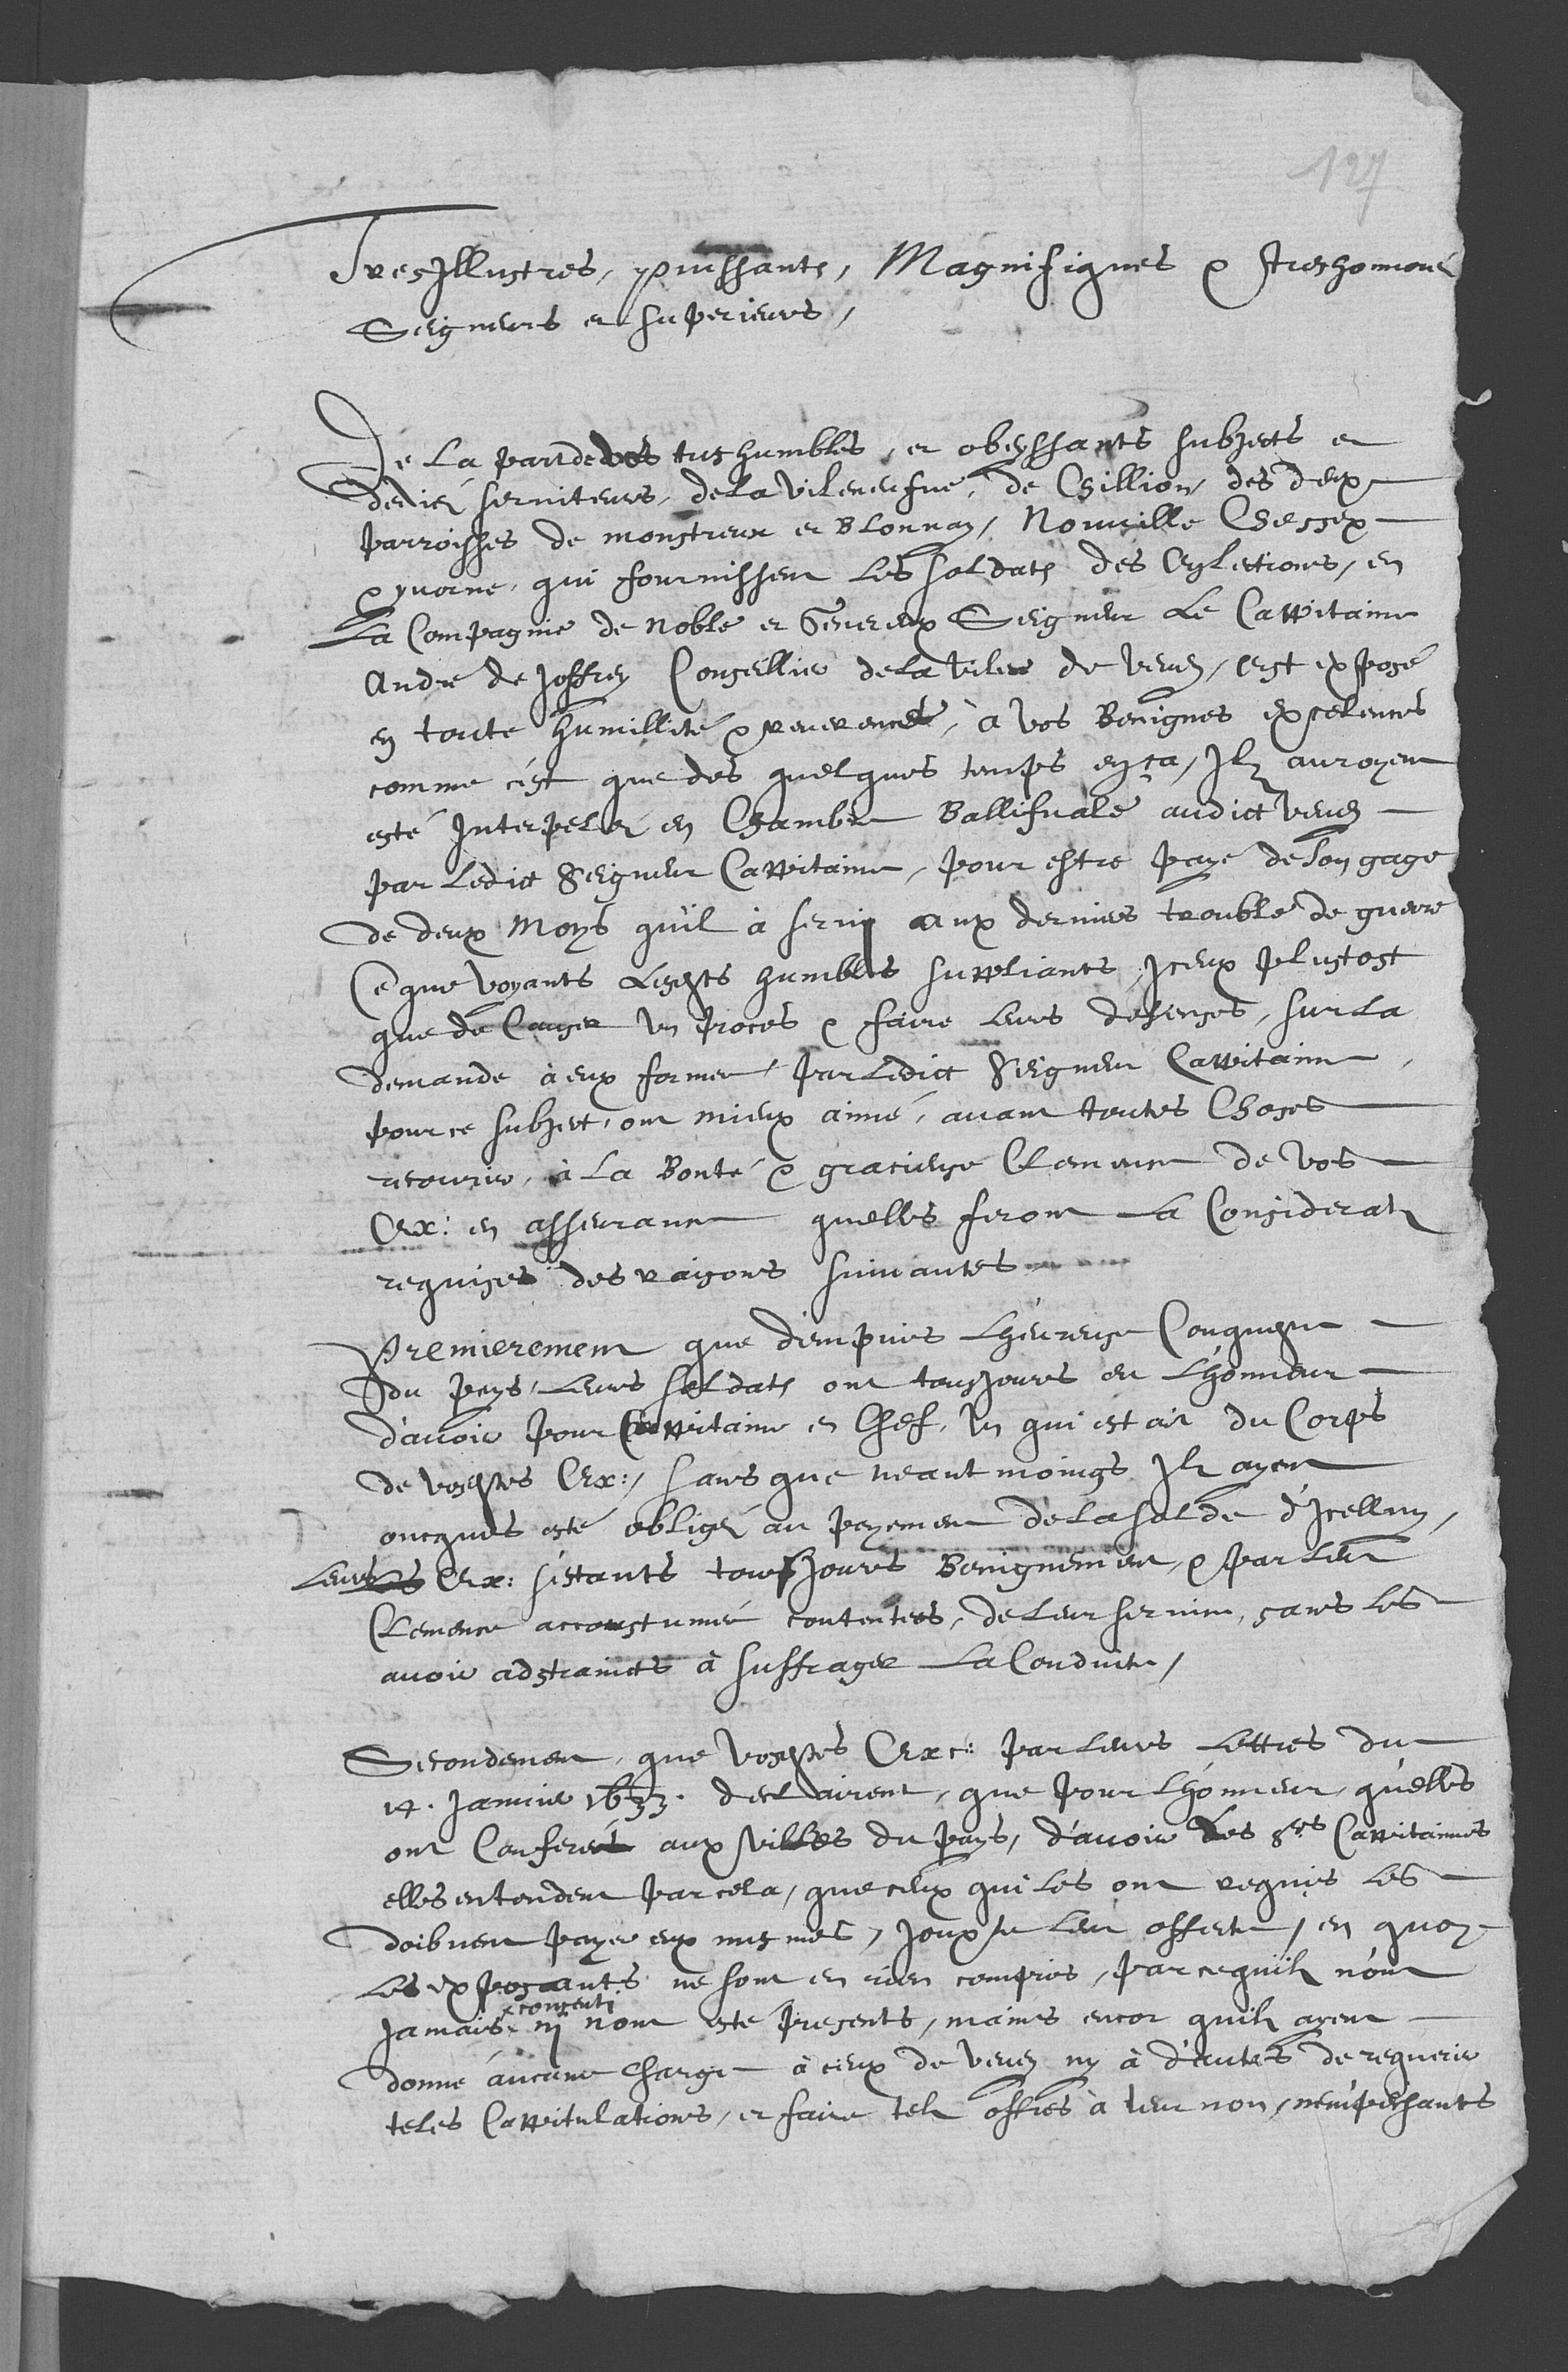 127
Tresillustres, puissants, Magnifiques & treshonnoréz
Seigneurs et superieurs,
De la part de vos tres humbles, et obeyssants subjects et
dediéz serviteurs, de la vileneufve, de Chillion, des deux
parroisses de monstreux et Blonnay, Noville Chessex
& yvorne, qui fournissent les soldats des Eslections, en
La Compagnie de Noble et Genereux Seigneur Le Cappitaine
André de Joffrey Conseillier de la vile de Vevey, est exposé
en toute humillité & reverence, à vos Benignes excelences
comme c'est que des quelques temps ença, Ilz auroyent
esté Interpeléz en Chambre Ballifvale audict Vevey
par ledict Seigneur Cappitaine, pour estre payé de son gage
de deux Moys qu'il à servy aux derniers trouble de guerre
Ce que voyants lesdits humbles suppliants, iceux plustost
que de Causer un proces & faire leurs defenses, sur la
demande à eux formee par ledict Seigneur Cappitaine
pour ce subject, ont mieux aimé, avant toutes Choses
recourir, à la Bonté & gracieuse Clemence de vos
Ex: en asseurance quelles feront la Considerat
requises des raisons suivantes
Premierement que d'empuis L'heureuse Conqueste
du pays, leurs soldats ont tousjours eu L'honneur
d'avoir pour Cappitaine en Chef, un qui estoit du Corps
de vosdites Ex:, sans que neantmoings Ilz ayent
oncques esté obligéz au payement de la solde d'Icelluy,
Leurs Ex: s'estants tousjours Benignement, & par leur
Clemence accoustumée contentees, de leur service, sans les
avoir adstraincts à suffrager La Conduite,
Secondement, que vosdites Exc: par leurs lettres du
14. Janvier 1633. declairent, que pour L'honneur, quelles
ont Conferéz aux villes du pays, d'avoir Les Srs Cappitaines
elles entendent par cela, que ceux qui les ont requis les
doibvent payer eux mesmes, jouxte leur offerte, en quoy
Les exposants ne sont en rien compris, parcequilz n'ont
consenti
Jamais ny n'ont esté presents, mains encor quilz ayent
donné aucune charge à ceux de Vevey ny à d'autres de requerir
teles Cappitulations, et faire telz offres à leur non, n'empeschants